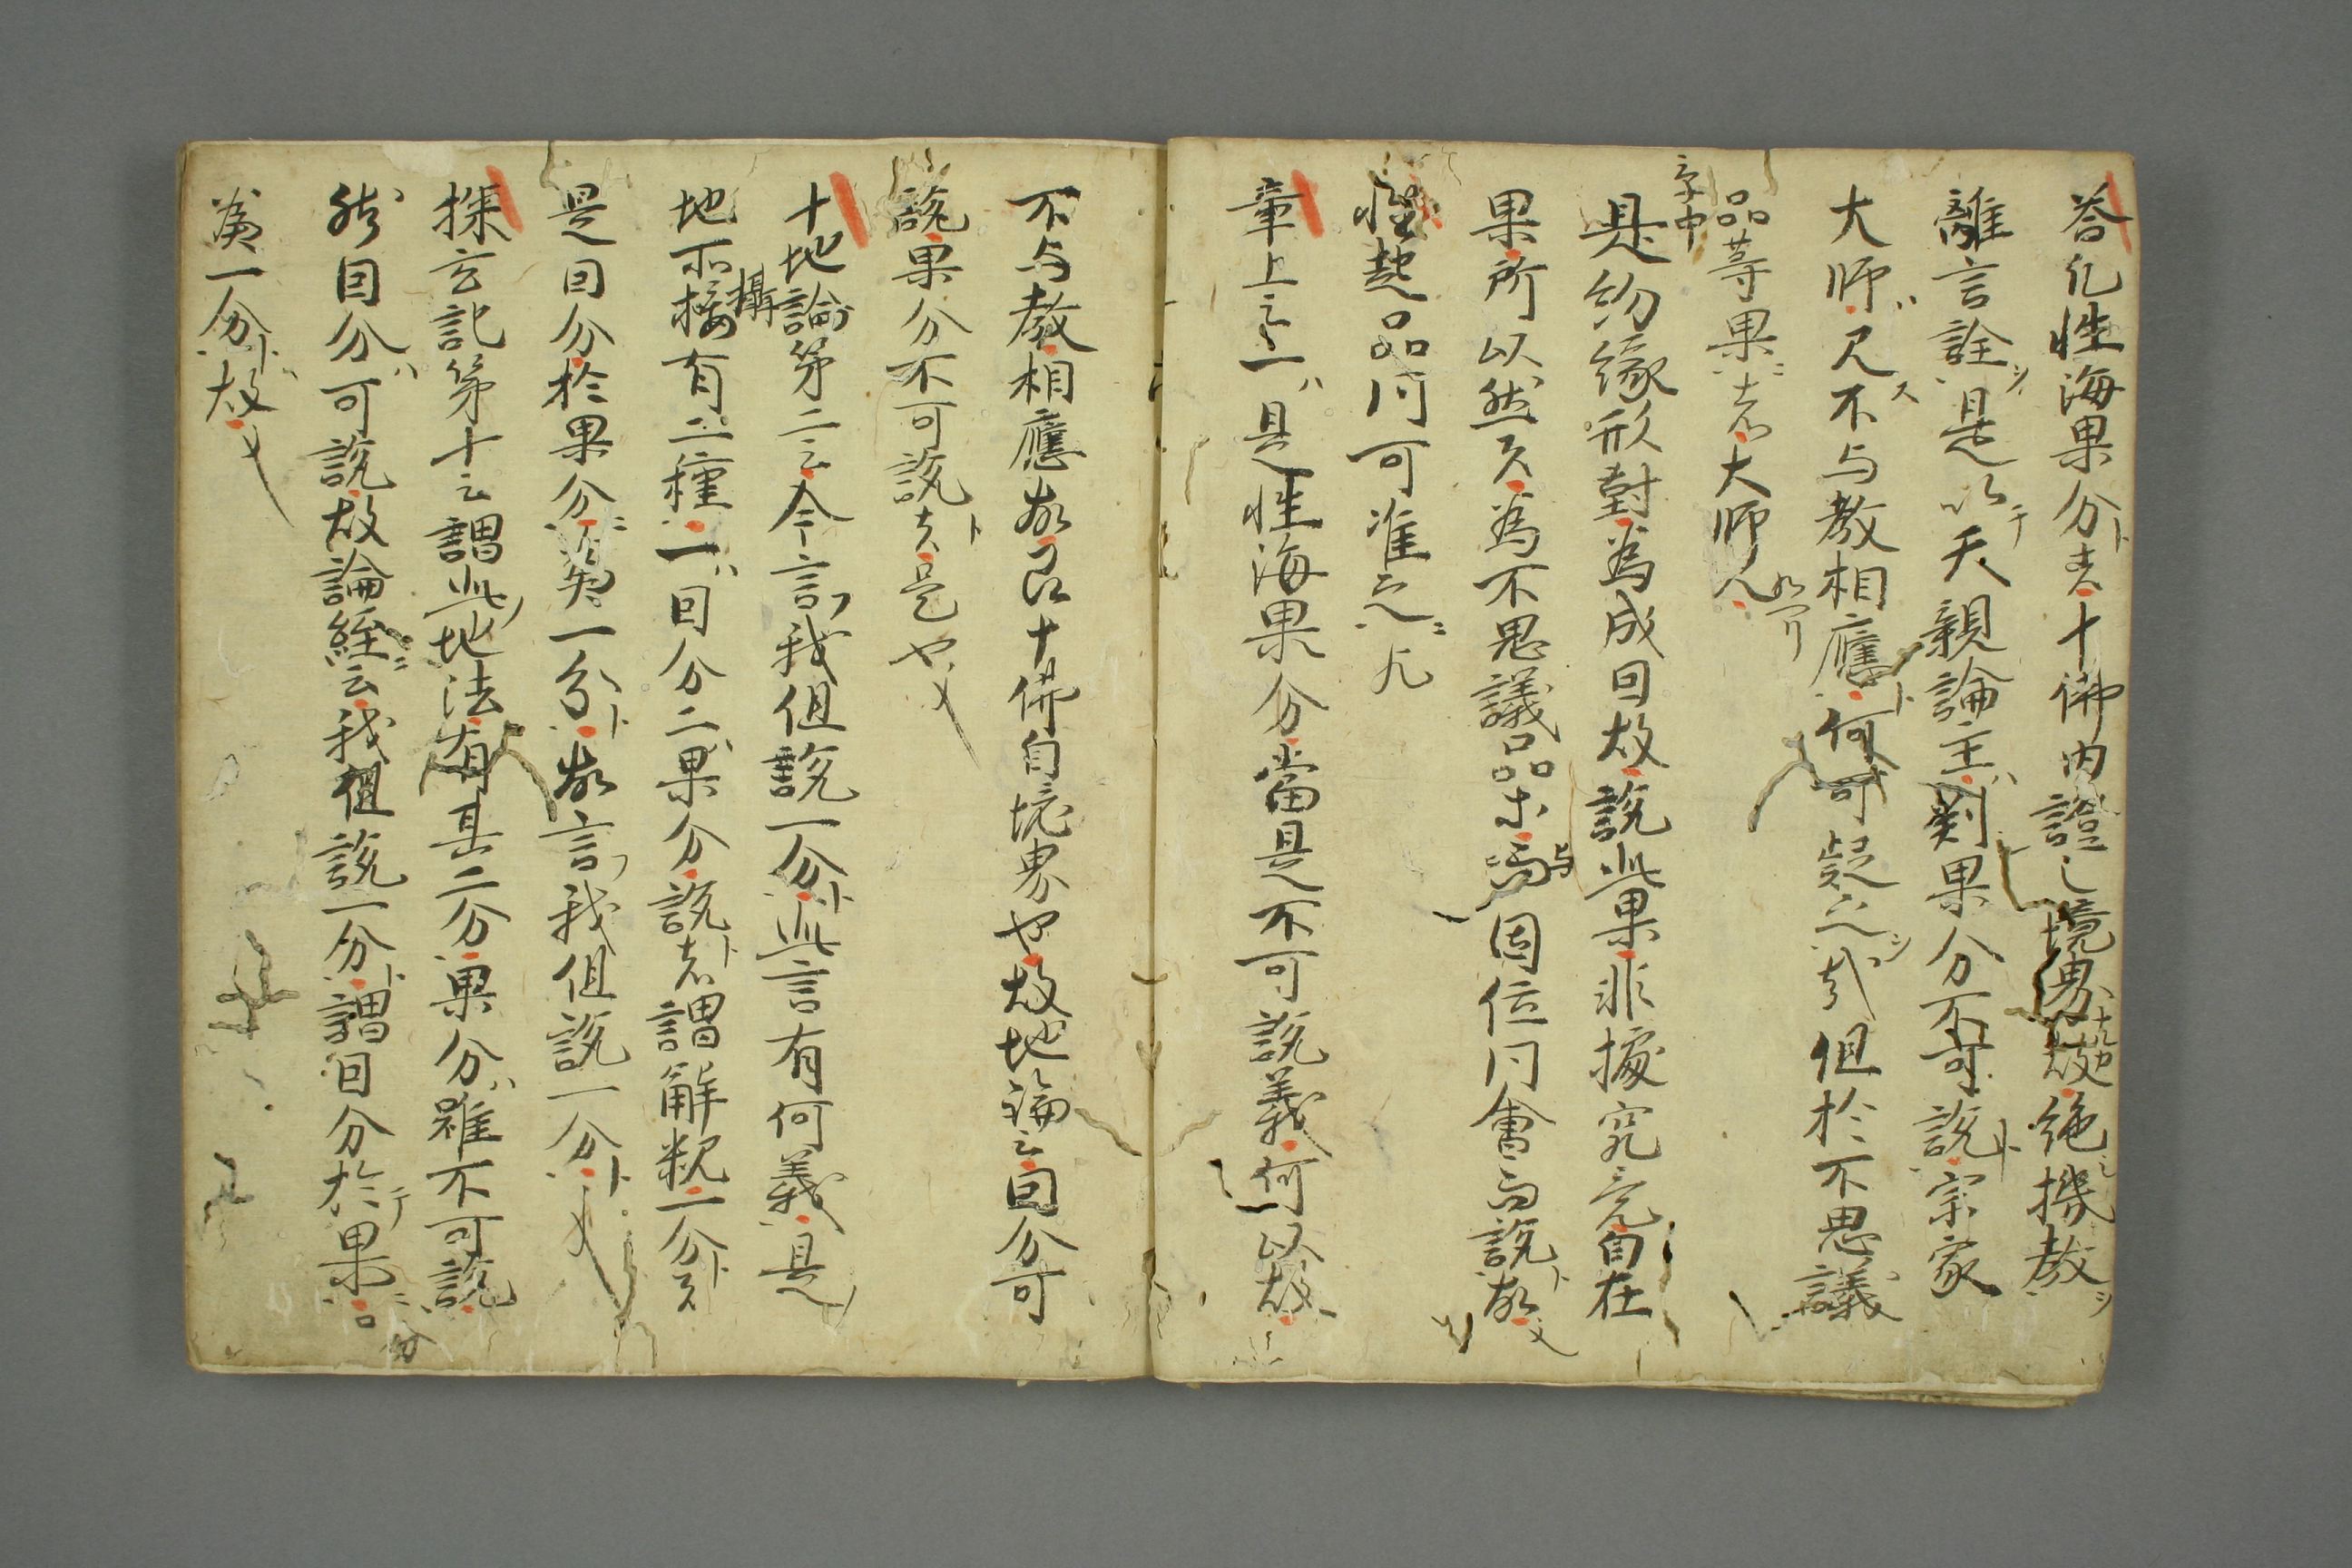 答凡性海果分者十佛内證之境界故絶機教
離言詮是以天親論主判果分不可説宗家
大師又不与教相應何可疑之哉但於不思議
品等果者大師又
是約縁形對為成因故説此果非據究竟自在
果所以然又為不思議品等為与因位同會而説故文
性起品同可准之
章上云一是性海果分當是不可説義何以故
不与教相應故即十佛自境界也故地論云因分可
説果分不可説者是也文
十地論第二云今言我但説一分此言有何義是
地所攝有二種一因分二果分説者謂解釈一分又
是因分於果分為一分故言我但説一分文
探玄記第十云謂此地法有其二分果分雖不可説
然因分可説故論経云我但説一分謂因分於果分
為一分故文